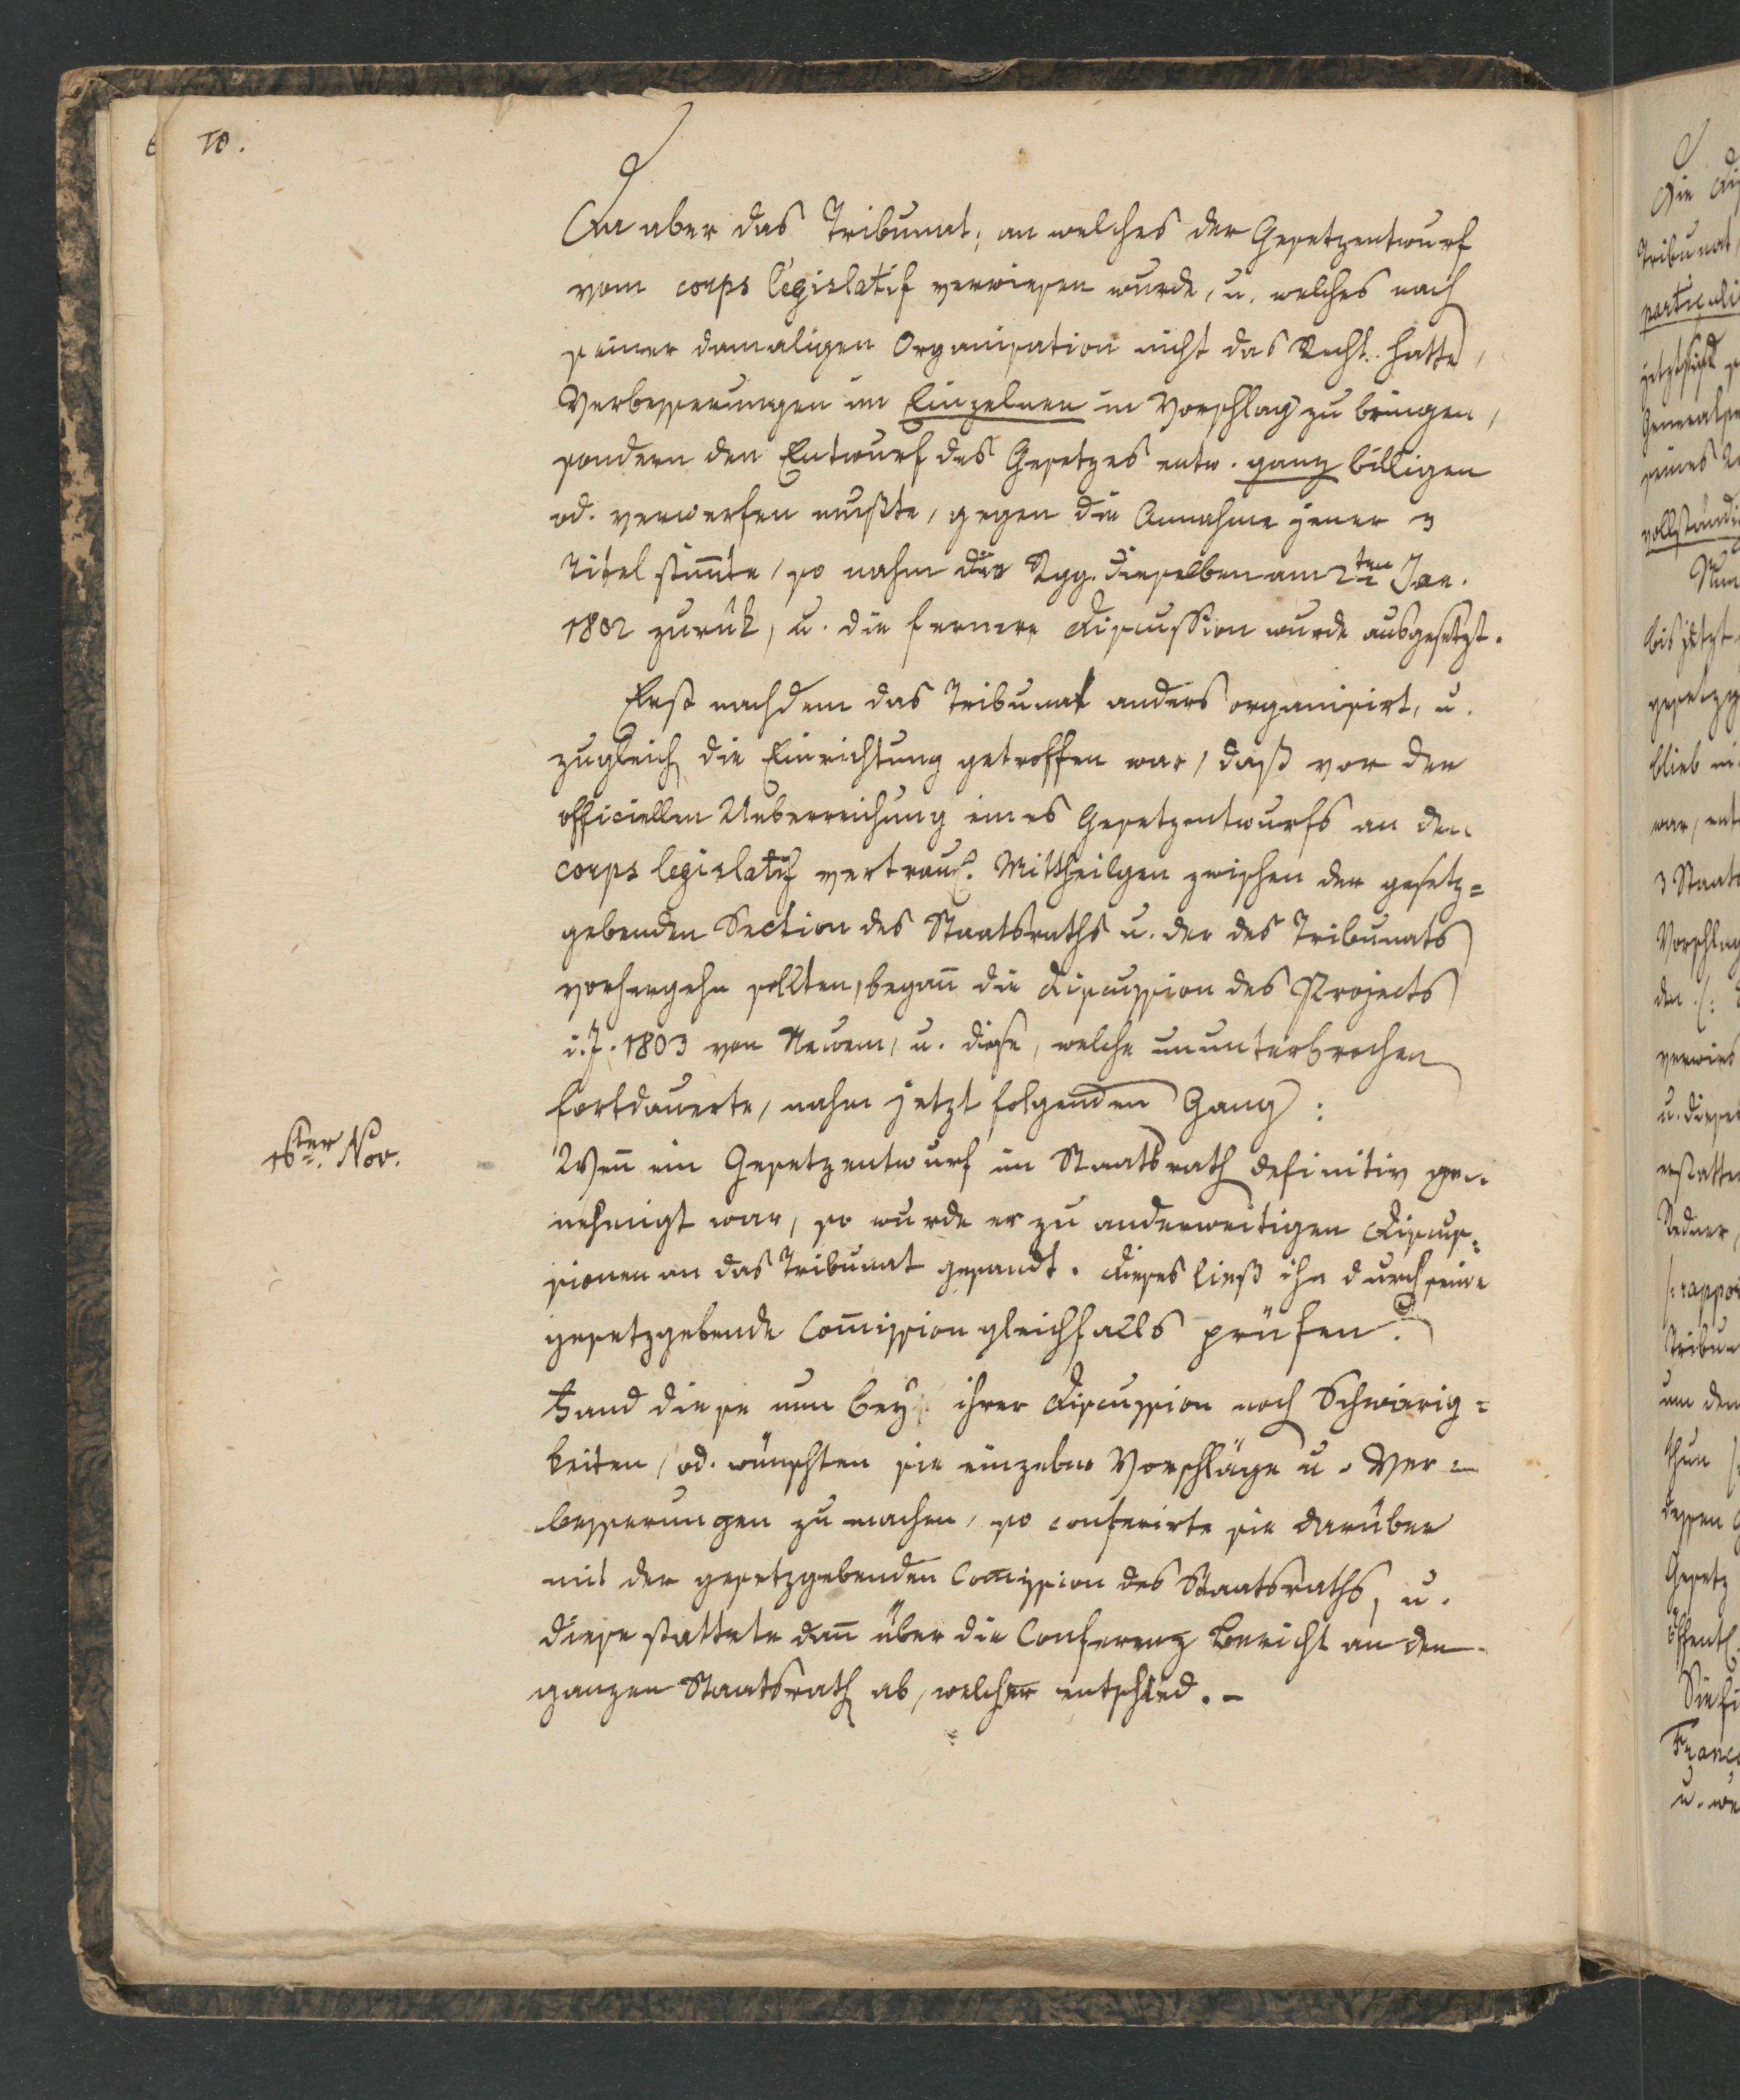 10.
Da aber das Tribunat, an welches der Gesetzentwurf
vom corps législatif verwiesen wurde, u. welches nach
seiner damaligen Organisation nicht das Recht hatte,
Verbesserungen im Einzelnen in Vorschlag zu bringen,
sondern den Entwurf des Gesetzes entw. ganz billigen
od. verwerfen mußte, gegen die Annahme jener 3
Titel stim̄te, so nahm die Rgg. dieselben am 2ten Jan.
1802 zurük, u. die fernere Discussion wurde ausgesetzt.
Erst nachdem das Tribunat anders organisirt, u.
zugleich die Einrichtung getroffen war, daß vor der
officiellen Ueberreichung eines Gesetzentwurfs an den
corps legislatif vertraul. Mittheilgen zwischen der gesetz=
gebenden Section des Staatsraths u. der des Tribunats
vorhergehn sollten, began̄ die Discussion des Projects
i. J. 1803 von Neuem, u. diese, welche ununterbrochen
fortdauerte, nahm jetzt folgenden Gang:
16ter Nov.
Wen̄ ein Gesetzentwurf im Staatsrath definitiv ge=
nehmigt war, so wurde er zu anderweitigen Discus=
sionen an das Tribunat gesandt. Dieses ließ ihn durch seine
gesetzgebende Com̄ission gleichfalls prüfen.
Fand diese nun bey ihrer Discussion noch Schwierig=
keiten, od. wünschten sie einzelne Vorschläge u. Ver=
besserungen zu machen, so conferirte sie darüber
mit der gesetzgebenden Com̄ission des Staatsraths, u.
diese stattete dan̄ über die Conferenz Bericht an den
ganzen Staatsrath ab, welcher entschied. –